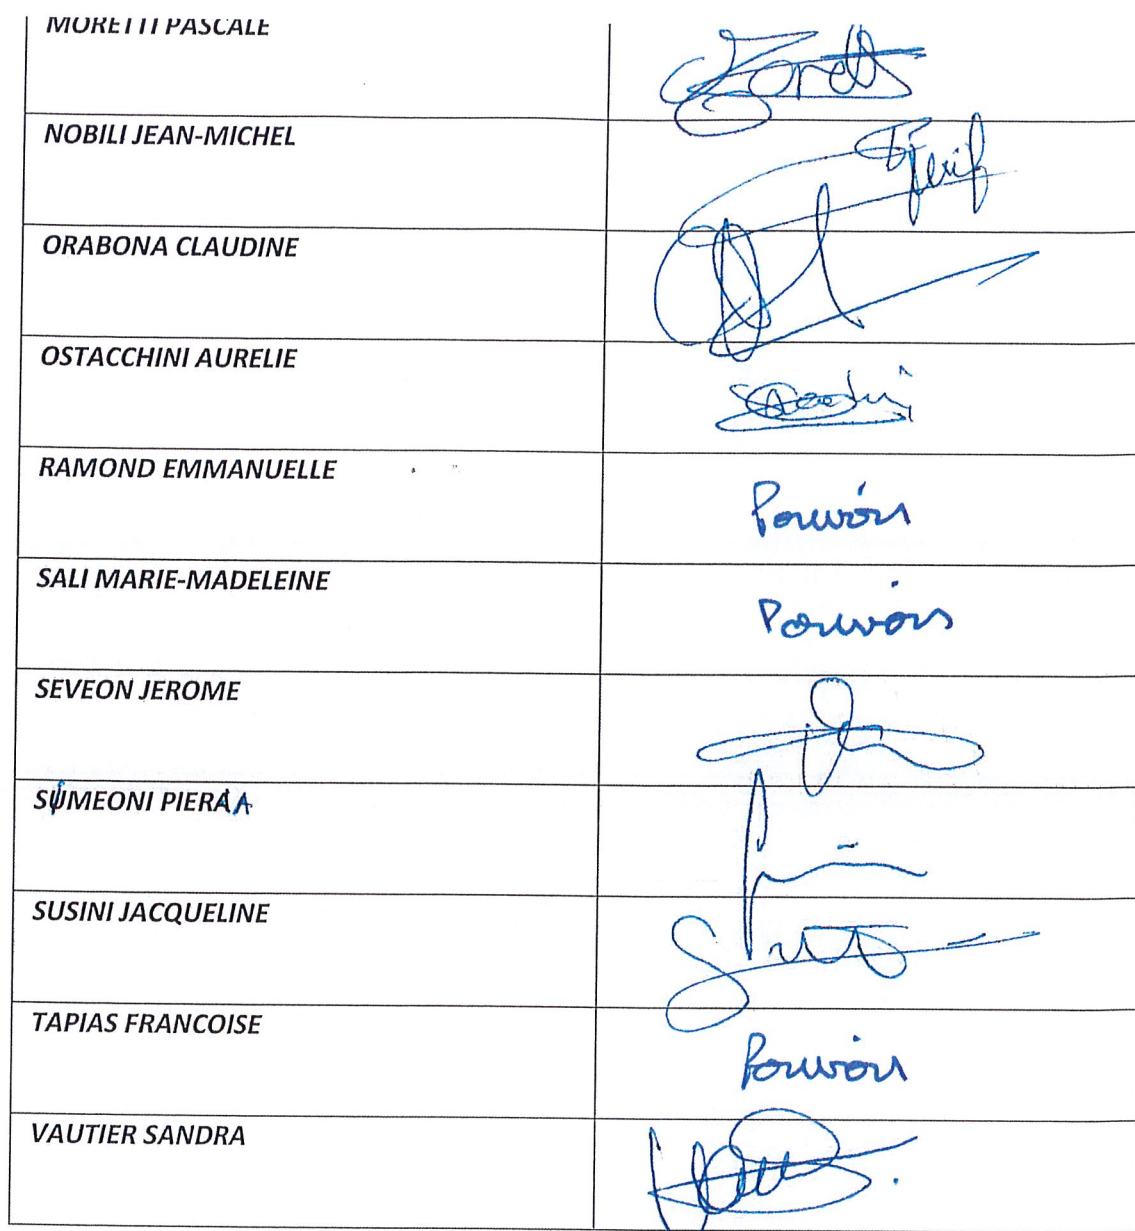 MORETTI PASCALE
NOBILI JEAN-MICHEL
ORABONA CLAUDINE
OSTACCHINI AURELIE
RAMOND EMMANUELLE
Pouvoir
SALI MARIE-MADELEINE
Pouvoir
SEVEON JEROME
SIMEONI PIERA
SUSINI JACQUELINE
TAPIAS FRANCOISE
Pouvoir
VAUTIER SANDRA